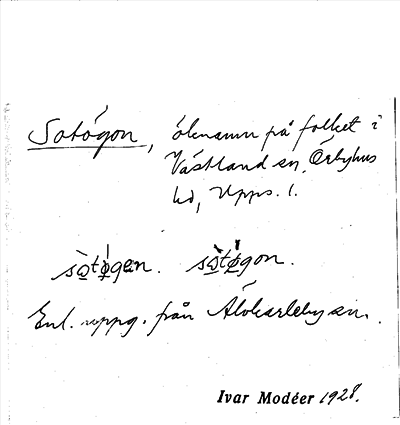 Sotögon, öknamn på folket i
Västland sn, Örbyhus
hd, Upps. l.
sòtö́gon. sòtǿgon.
Enl. uppg. från Älvkarleby sn.
Ivar Modéer 1928.